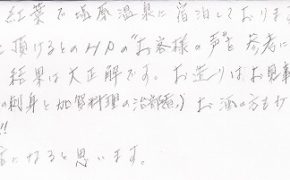 紅葉で塩原温泉に宿泊しております
と頂けるとのHPの"お客様の声"を参考に
結果は大正解です。お造りはお見事
の刺身と加賀料理の治部煮、お酒の方もす
!!
になると思います。